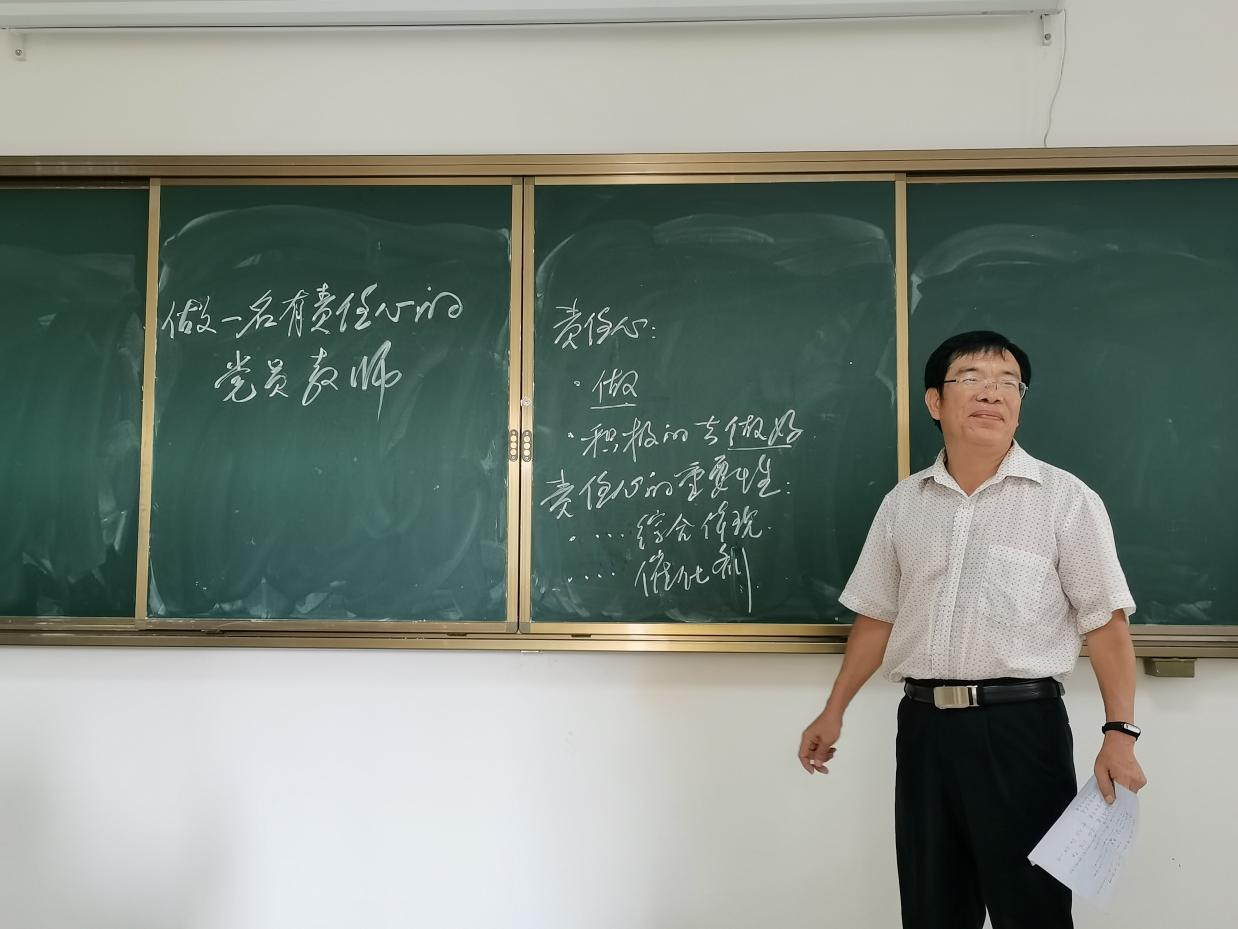 做一名有责任心的
党员教师
责任心:
·做
·积极的去做好
责任心的重要性:
·····综合体现.
·····催化剂.